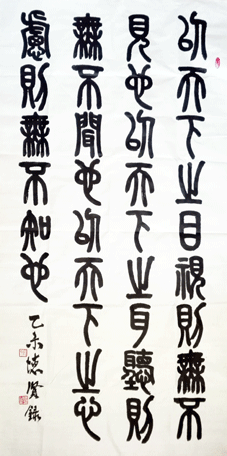 以天下之目視則無不
見也以天下之耳聽則
無不聞也以天下之心
慮則無不知也
乙未德賢錄